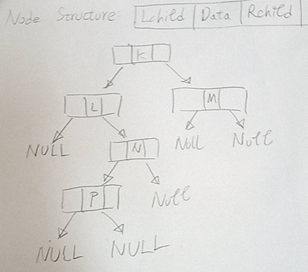 Node Structure Lchild Data Rchild
K
L M
NULL N Null Null
P Null
NULL NULL